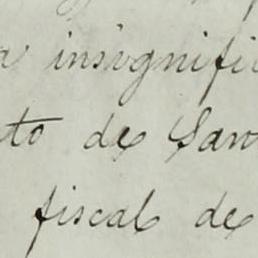 a insignifi
to de San
fiscal de